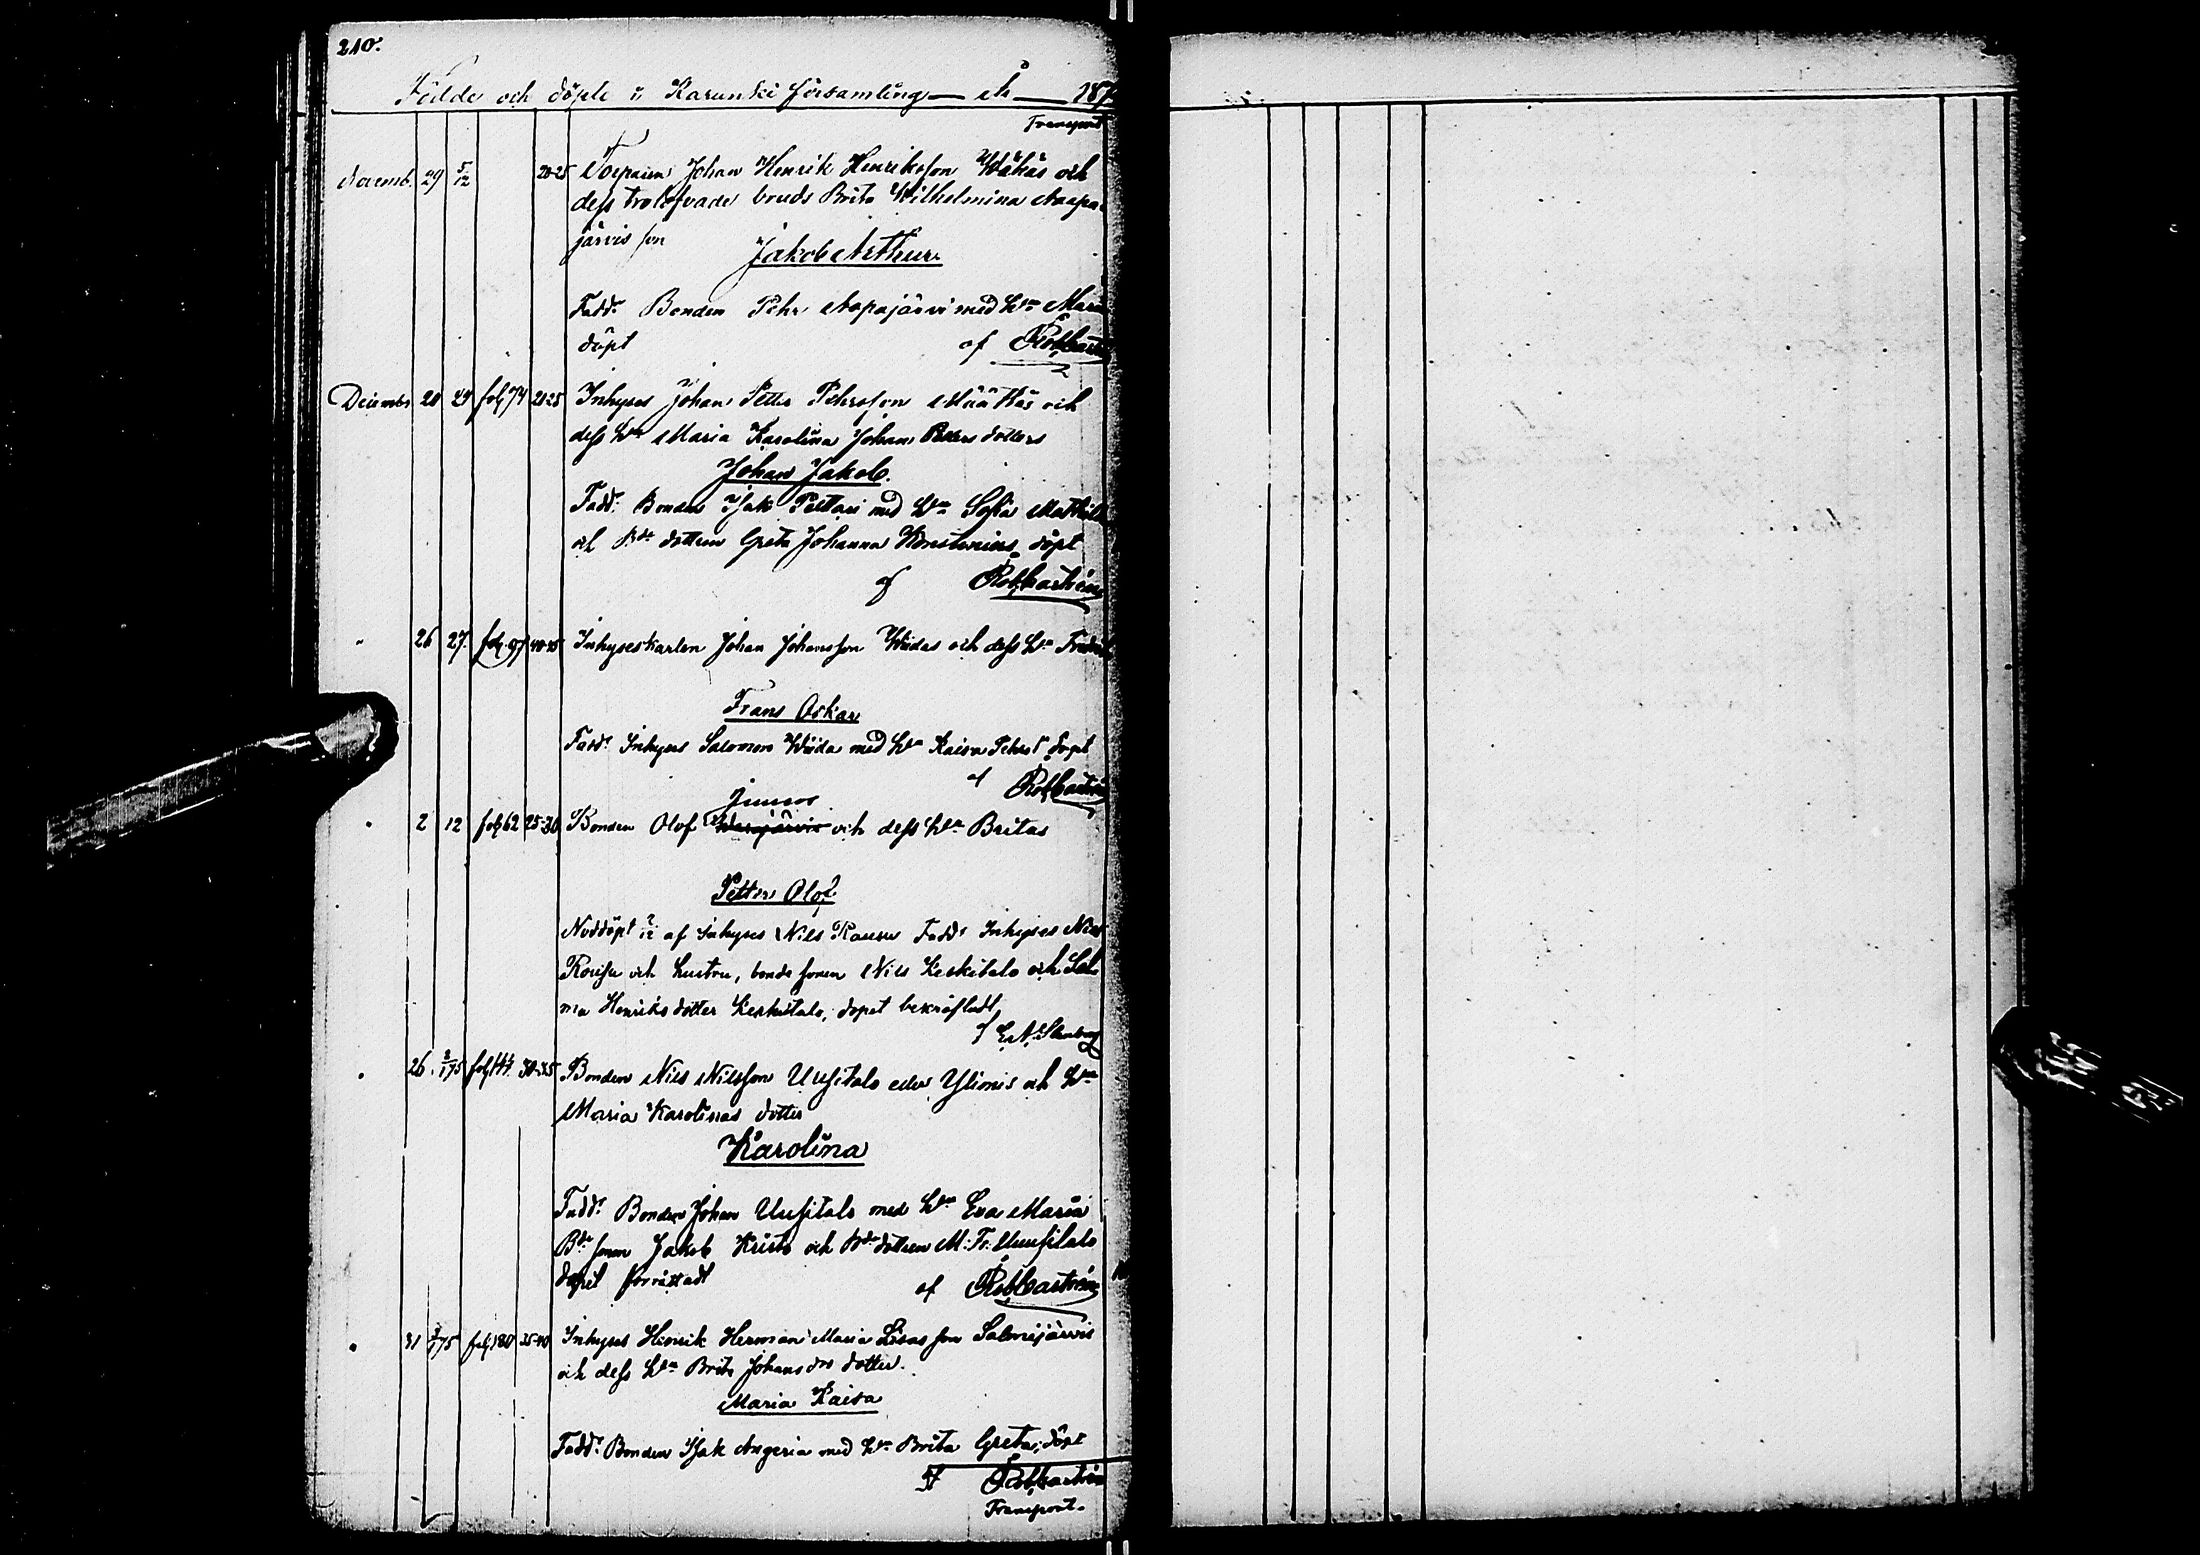 210.
Födde och döpte i Karunki församling år 187
Transport
Novemb. 29 5/12 20-25 Torparen Johan Henrik Henriksson Wähäs och
dess trolofvade bruds Brita Wilhelmina Aapa-
järvis son
Jakob Arthur.
Fadd. Bonden Pehr Aapajärvi med h:u Maria
döpt af Rob Castrén
December 20 29 fol 74 20-25 Inhyses Johan Petter Pehrsson Määttäs och
dess h:u Maria Karolina Johans dotters
Johan Jakob.
Fadd. Bonden Isak Pelttari med h:u Sofia Mathilda
och B:de dottern Greta Johanna döpt
af Rob Castrén
" 26 27. fol. 97 40-45 Inhyseskarlen Johan Johansson Wiidas och dess h:u
Frans Oskar
Fadd. Inhyses Salomon Wiida med h:u Kaisa Pehrs d. döpt
af Rob Castrén
Junsos
" 2 12 fol 62 25-30 Bonden Olof och dess h:u Britas
Petter Olof
Nöddöpt 2/12 af Inhyses Nils Fadd. Inhyses Nils
och hustru, bonde sonen Nils Keskitalo och Sal
ma Henriks dotter Keskitalo, dopet bekräftadt
af
" 26. 2/1 75 fol 144. 30-35 Bonden Nils Nilsson Uusitalo eller Ylionis och h:u
Maria Karolinas dotter
Karolina
Fadd. Bonden Johan Uusitalo med h:u Eva Maria
B:de sonen Jakob Kristo och B:de dottern M: Fr. Uusitalo
dopet förrättadt af Rob Castrén
" 31 75 fol 180 35-40 Inhyses Henrik Herman Maria Lisas son Salmijärvis
och dess h:u Brita Johans drs dotter.
Maria Kaisa
Fadd. Bonden Isak Angeria med h:u Brita Greta; döpt
af Rob Castrén
Transport.